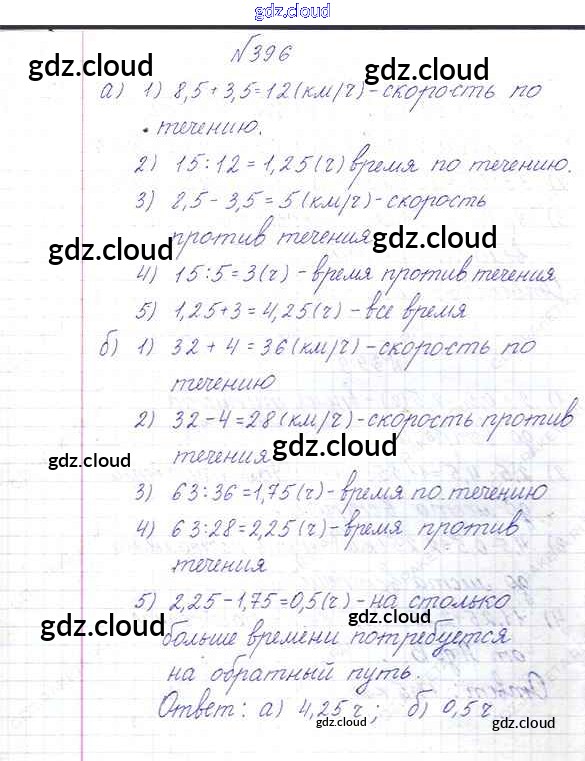 gdz.cloud
№396
gdz.cloud gdz.cloud
а) 1) 8,5 + 3,5 = 12 (км/ч) - скорость по
течению.
2) 15 : 12 = 1,25 (ч) время по течению.
3) 8,5 - 3,5 = 5 (км/ч) - скорость
против течения
gdz.cloud gdz.cloud
4) 15 : 5 = 3 (ч) - время против течения
5) 1,25 + 3 = 4,25 (ч) - все время
б) 1) 32 + 4 = 36 (км/ч) - скорость по
течению
2) 32 - 4 = 28 (км/ч) - скорость против
течения
gdz.cloud gdz.cloud
3) 63 : 36 = 1,75 (ч) - время по течению
4) 63 : 28 = 2,25 (ч) - время против
течения
5) 2,25 - 1,75 = 0,5 (ч) - на столько
gdz.cloud gdz.cloud
больше времени потребуется
на обратный путь.
Ответ: а) 4,25 ч; б) 0,5 ч
gdz.cloud gdz.cloud